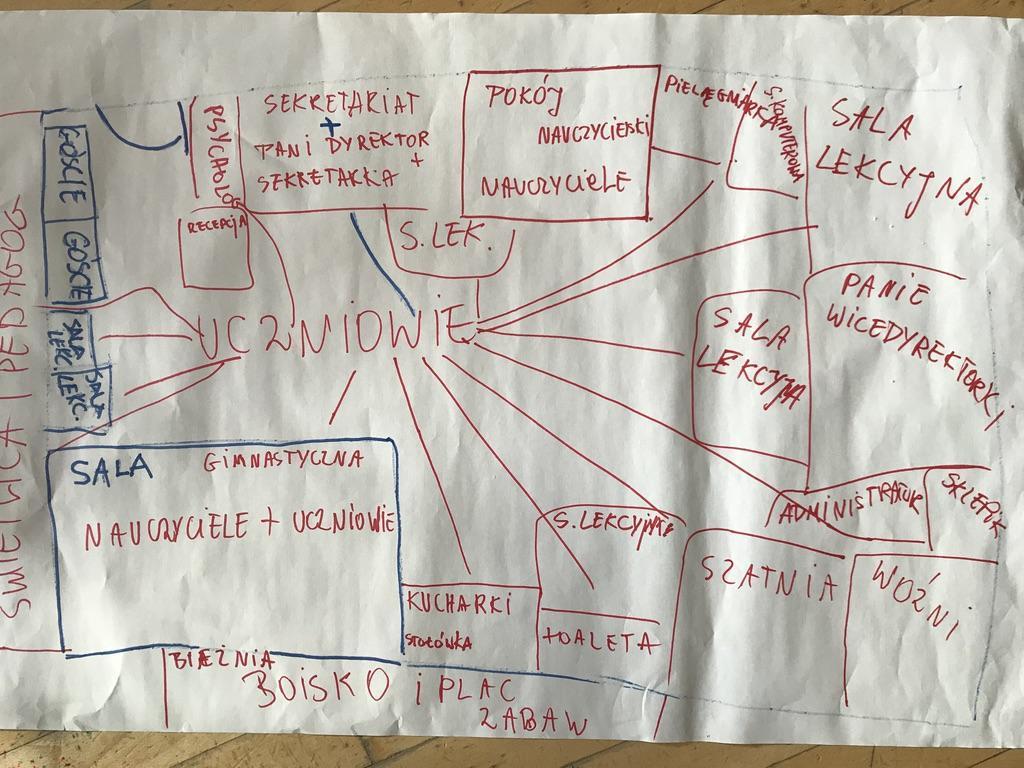 ŚWIETLICA I PEDAGOG
GOŚCIE
GOŚCIE
SALA
LEKC.
SALA
LEKC.
PSYCHOLOG
RECEPCJA
SEKRETARIAT
+
PANI DYREKTOR
+
SEKRETARKA
S. LEK.
POKÓJ
NAUCZYCIELSKI
NAUCZYCIELE
PIELĘGNIARKA
S. KOMPUTEROWA
SALA
LEKCYJNA
PANIE
WICEDYREKTORKI
SALA
LEKCYJNA
UCZNIOWIE
SALA GIMNASTYCZNA
NAUCZYCIELE + UCZNIOWIE
KUCHARKI
STOŁÓWKA
S. LEKCYJNA
TOALETA
ADMINISTRATOR
SKLEPIK
SZATNIA
WOŹNI
BIEŻNIA
BOISKO i PLAC
ZABAW